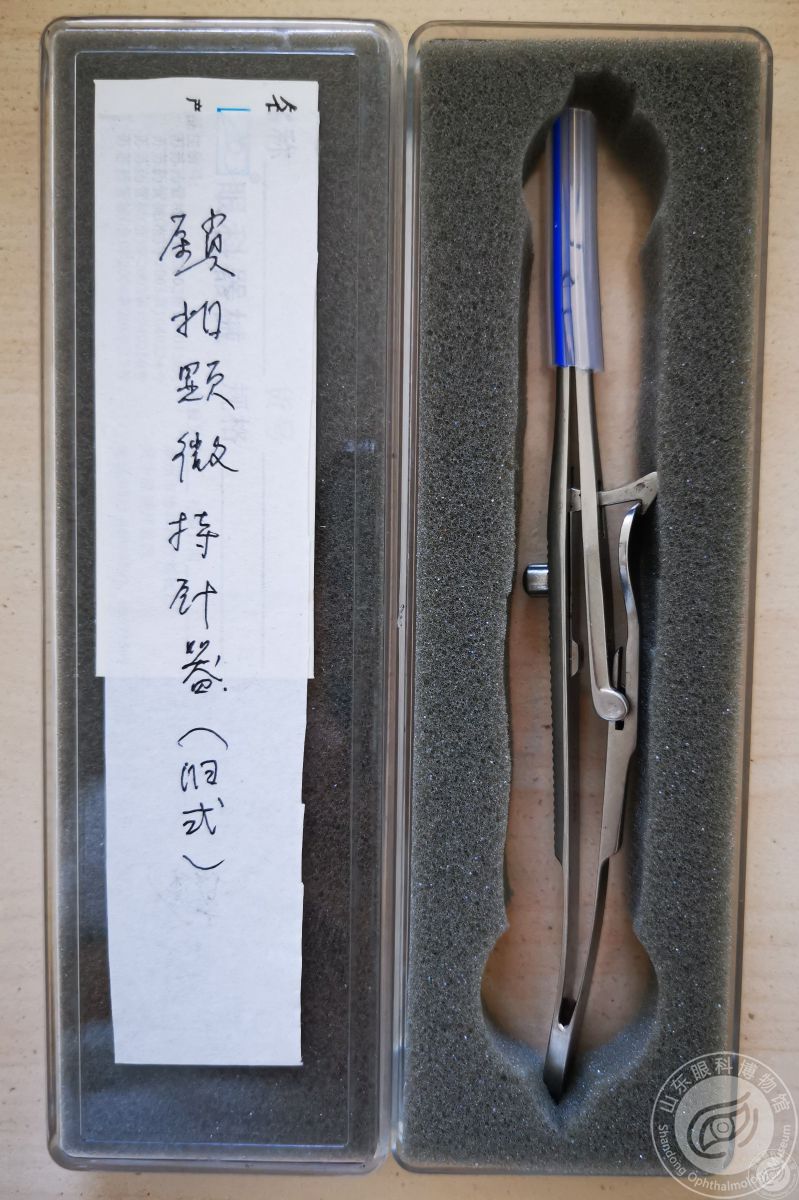 鎖扣显微持针器（旧式）
山东眼科博物馆
Shandong Ophthalmology Museum